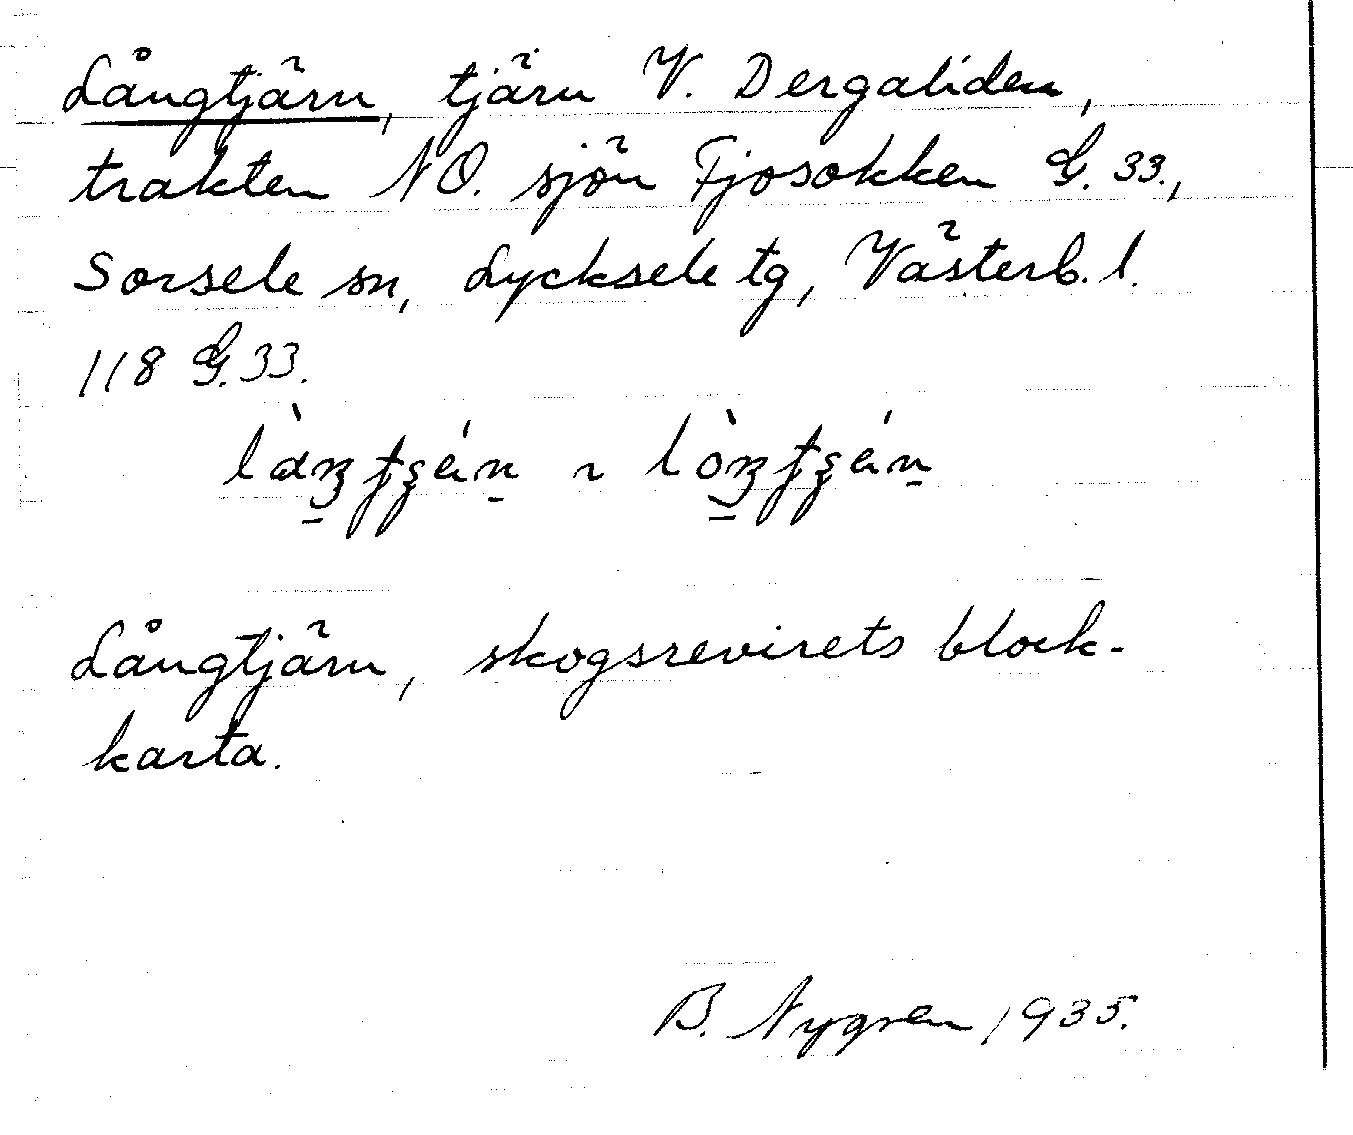 Långtjärn, tjärn V. Dergaliden,
trakten NO. sjön Fjosokken G. 33.,
Sorsele sn, Lycksele tg, Västerb. l.
118 G. 33.
Långtjärn, skogsrevirets block-
karta.
B. Nygren 1935.